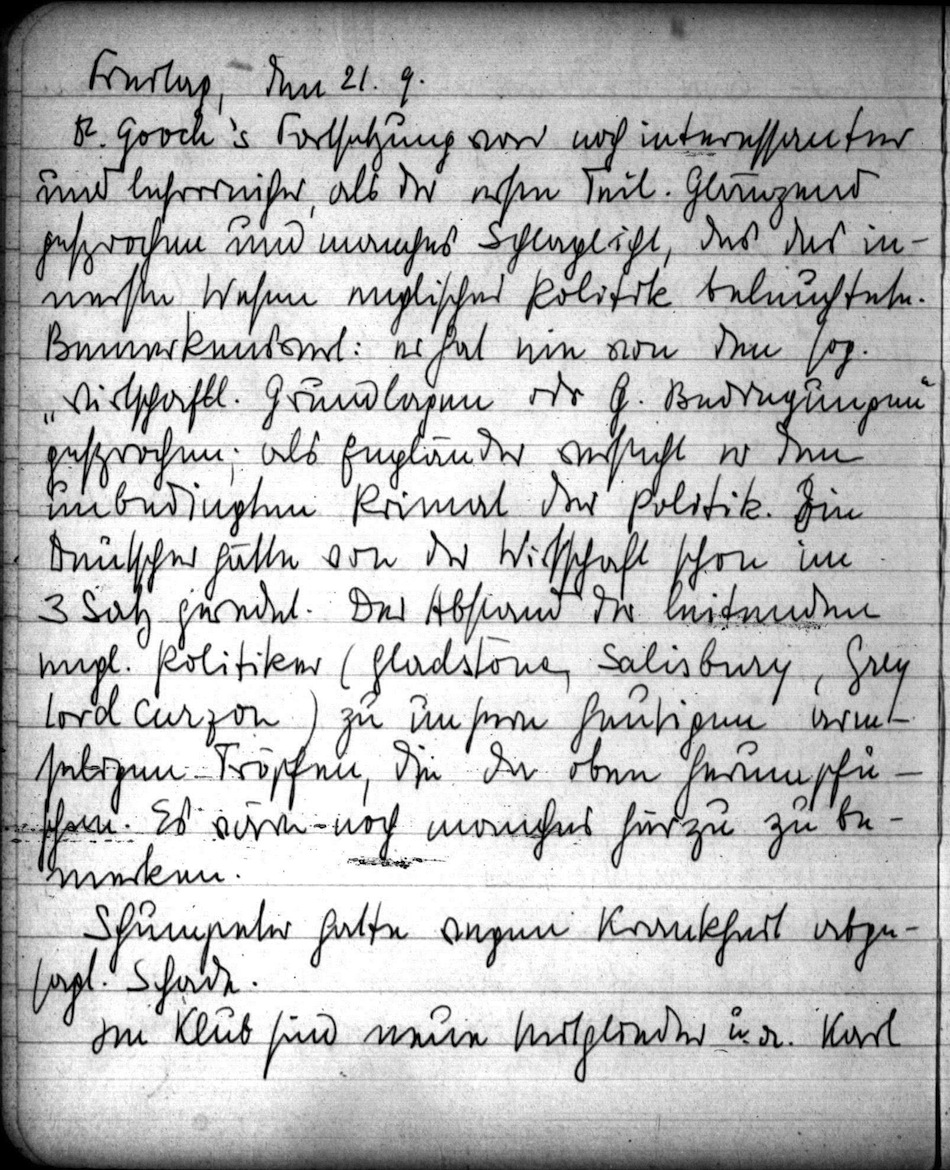 Freitag, den 21. 9.
R. Gooch's Fortsetzung war noch interessanter
und lehrreicher, als der erste Teil. Glänzend
gesprochen und manches Schlaglicht, das das in-
nerste Wesen englischer Politik beleuchtete.
Bemerkenswert: er hat nie von den sog.
„wirtschaftl. Grundlagen oder G. Bedingungen"
gesprochen; als Engländer versucht er den
unbedingten Primat der Politik. Ein
Deutscher hätte von der Wirtschaft schon im
3 Satz geredet. Der Abstand der leitenden
engl. Politiker (Gladstone, Salisbury, Grey
Lord Curzon) zu unsern heutigen arm-
seligen Tröpfen, die da oben herumpfu-
schen. Es wäre noch manches hierzu zu be-
merken.
Schumpeter hatte wegen Krankheit abge-
sagt. Schade.
Im Klub sind neue Mitglieder u. a. Karl